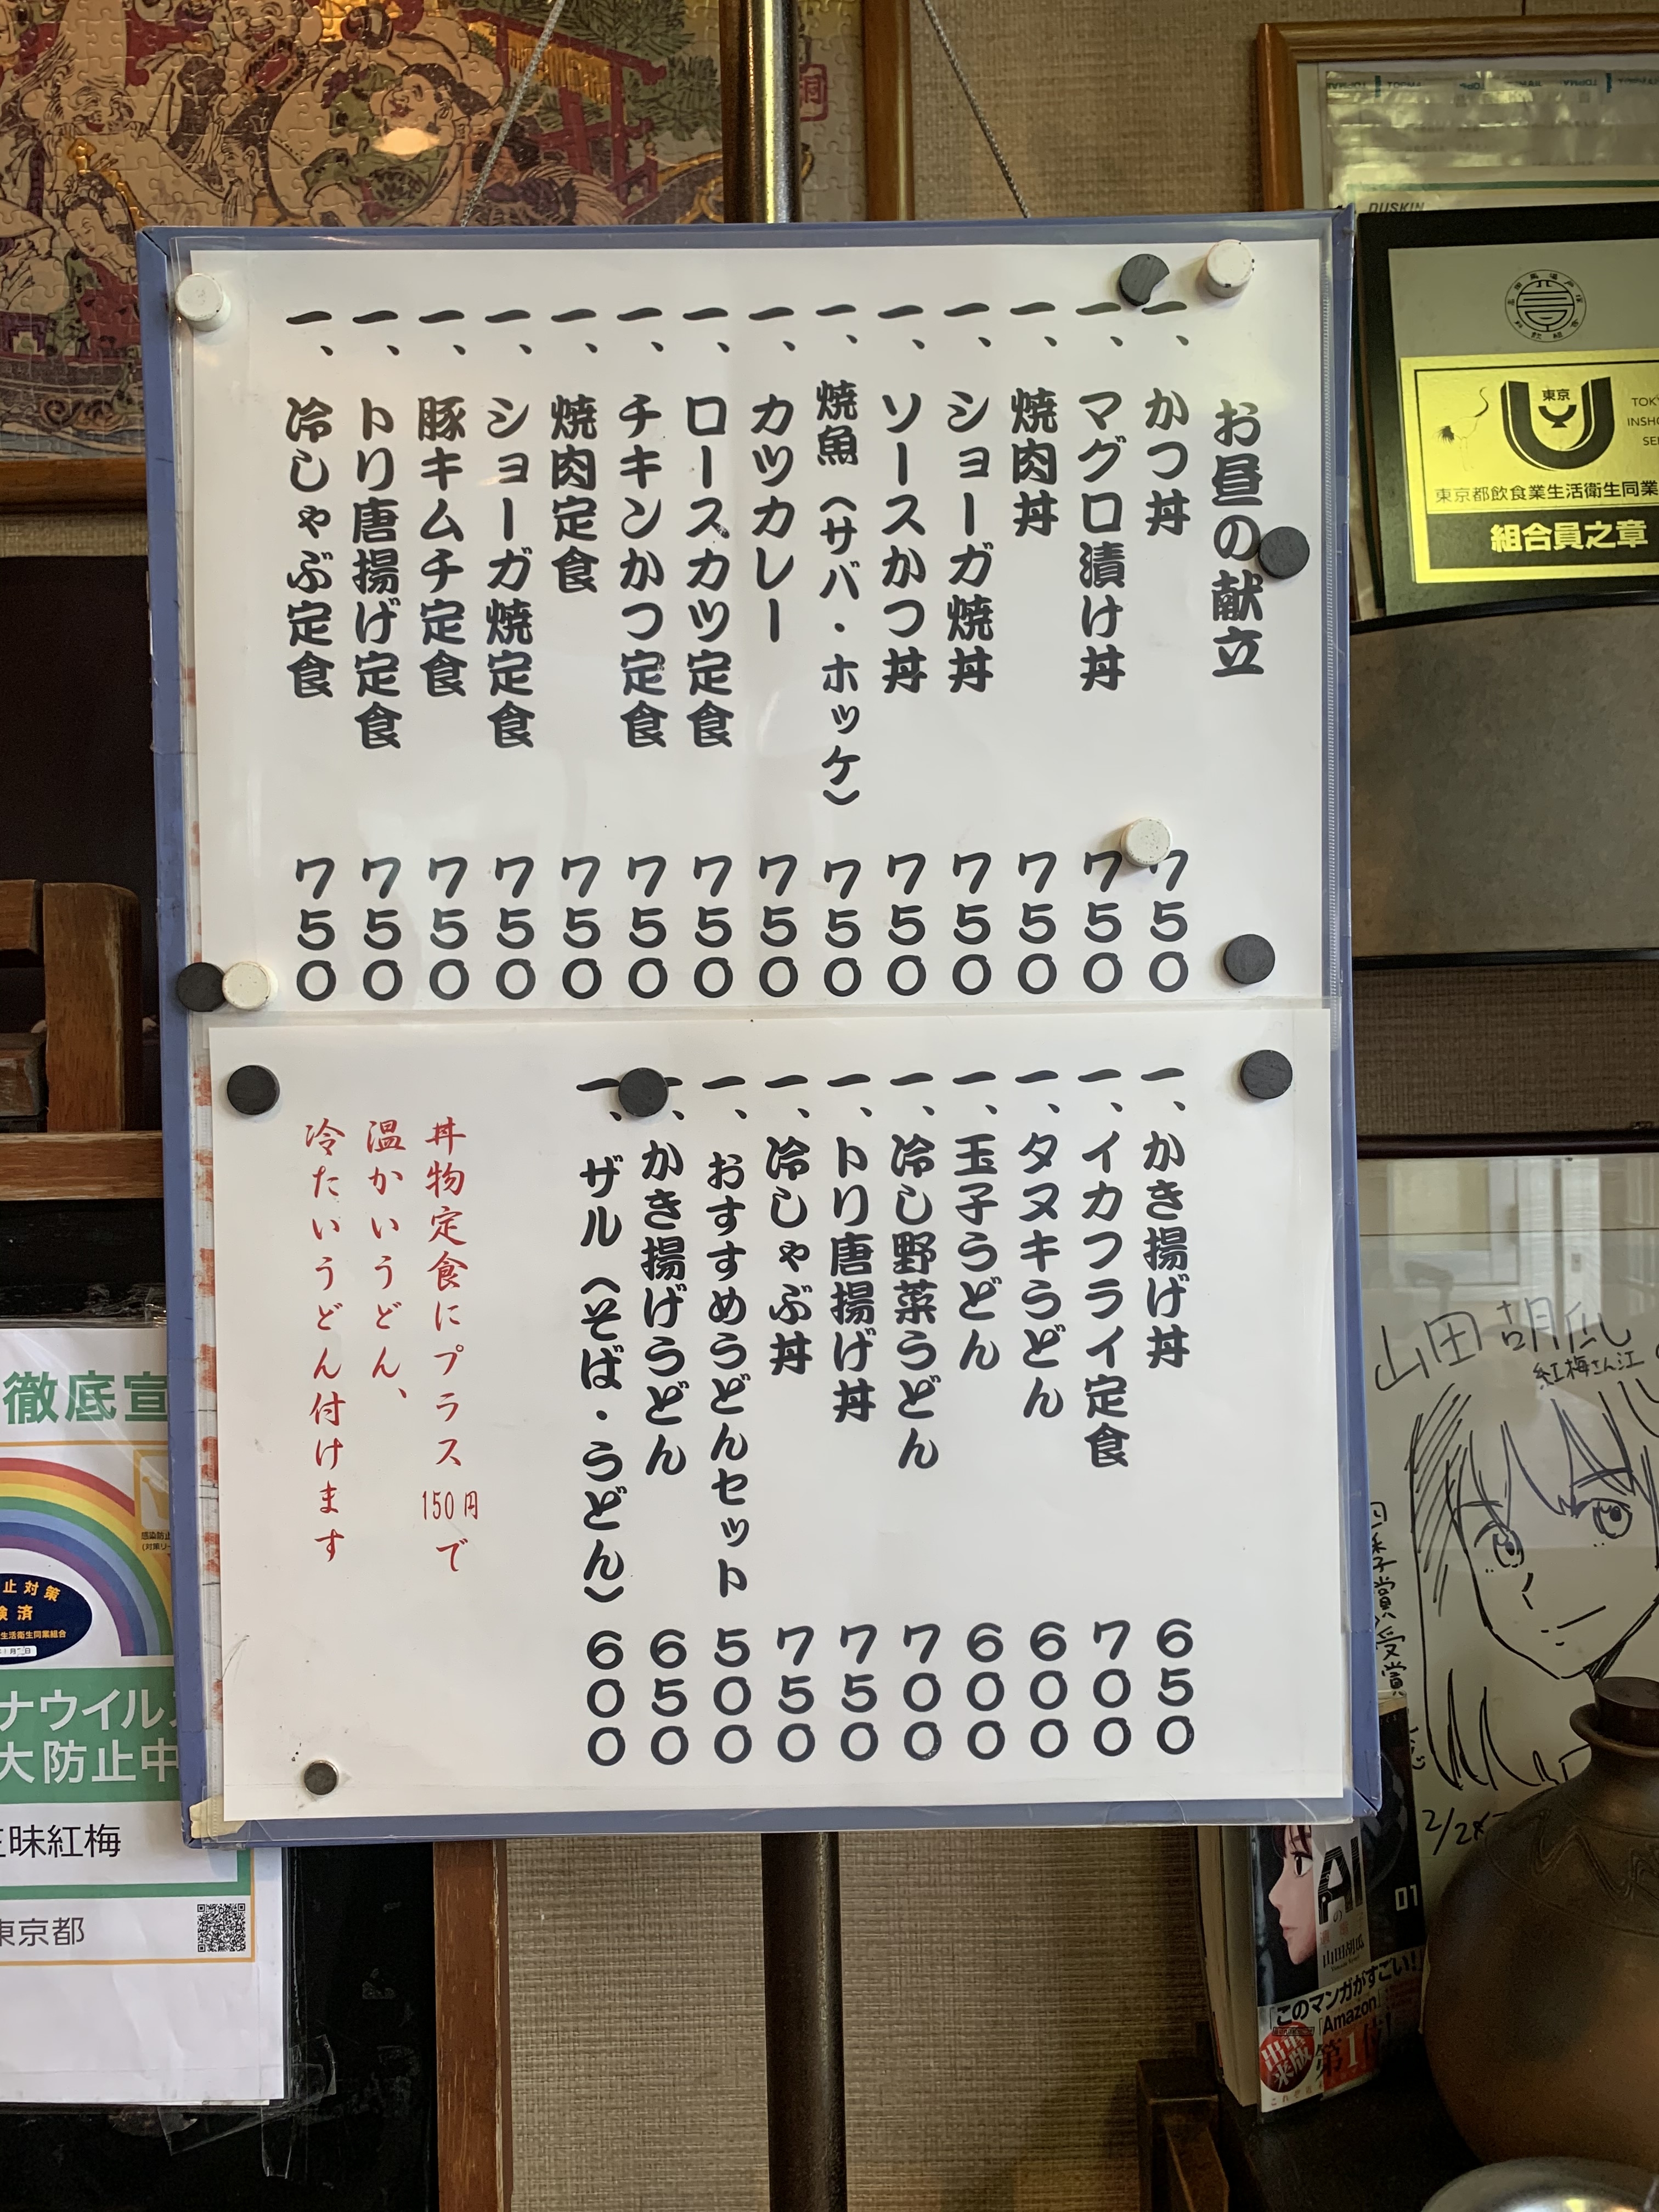 お昼の献立
一、かつ丼 750
一、マグロ漬け丼 750
一、焼肉丼 750
一、ショーガ焼丼 750
一、ソースかつ丼 750
一、焼魚（サバ・ホッケ） 750
一、カツカレー 750
一、ロースカツ定食 750
一、チキンかつ定食 750
一、焼肉定食 750
一、ショーガ焼定食 750
一、豚キムチ定食 750
一、トリ唐揚げ定食 750
一、冷しゃぶ定食 750
一、かき揚げ丼 650
一、イカフライ定食 700
一、タヌキうどん 600
一、玉子うどん 600
一、冷し野菜うどん 700
一、トリ唐揚げ丼 750
一、冷しゃぶ丼 750
一、おすすめうどんセット 500
一、かき揚げうどん 650
一、ザル（そば・うどん） 600
丼物定食にプラス150円で
温かいうどん、
冷たいうどん付けます
DUSKIN
東京
東京都飲食業生活衛生同業
組合員之章
徹底宣
止対策
生活衛生同業組合
ナウイルス
大防止中
昧紅梅
東京都
山田胡瓜
紅梅さん江
2/28
AI
の
01
山田胡瓜
「このマンガがすごい!
「Amazon」
第1位!